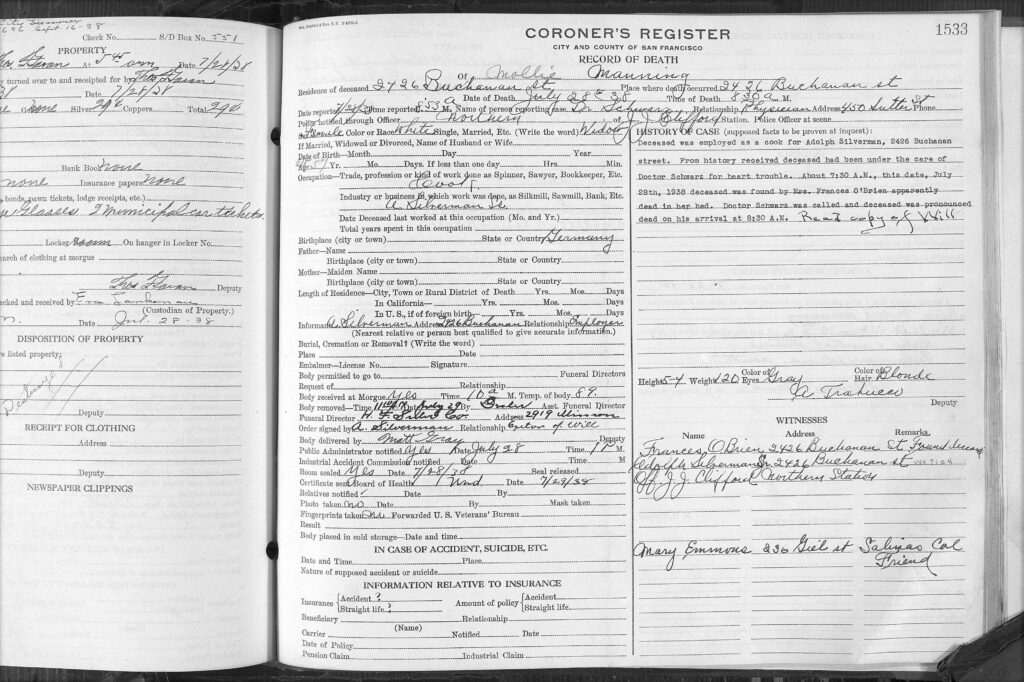 Sept. 16-38
Check No. S/D Box No. 551
PROPERTY
At 5 45 am Date 7/28/38
y turned over to and receipted for by
38 Date 7/28/38
none Silver 29¢ Coppers Total 29¢
Bank Book none
none Insurance papers none
, bonds, pawn tickets, lodge receipts, etc.)
Glasses 2 municipal car tickets.
Locker room On hanger in Locker No.
earch of clothing at morgue
Deputy
ecked and received by
(Custodian of Property.)
m. Date Jul. 28-38
DISPOSITION OF PROPERTY
e listed property:
Deputy
RECEIPT FOR CLOTHING
Address
Deputy
NEWSPAPER CLIPPINGS
CORONER'S REGISTER 1533
CITY AND COUNTY OF SAN FRANCISCO
RECORD OF DEATH
OF Mollie Manning
Residence of deceased 2426 Buchanan st Place where death occurred 2426 Buchanan st
Date of Death July 28th 38 Time of Death 830 a M.
Date reported 7/28/38 Time reported 8 55 a Name of person reporting case Dr. Schwarz Relationship Physician Address 450 Sutter St Phone
Police notified through Officer Northern of J J Clifford Station. Police Officer at scene
Female Color or Race White Single, Married, Etc. (Write the word) Widow
If Married, Widowed or Divorced, Name of Husband or Wife
Date of Birth—Month Day Year
Age Yr. Mo. Days. If less than one day Hrs. Min.
Occupation—Trade, profession or kind of work done as Spinner, Sawyer, Bookkeeper, Etc.
Cook
Industry or business in which work was done, as Silkmill, Sawmill, Bank, Etc.
A Silverman
Date Deceased last worked at this occupation (Mo. and Yr.)
Total years spent in this occupation
Birthplace (city or town) State or Country Germany
Father—Name
Birthplace (city or town) State or Country
Mother—Maiden Name
Birthplace (city or town) State or Country
Length of Residence—City, Town or Rural District of Death Yrs. Mos. Days
In California— Yrs. Mos. Days
In U.S., if of foreign birth Yrs. Mos. Days
Informant A. Silverman Address 2426 Buchanan Relationship Employer
(Nearest relative or person best qualified to give accurate information.)
Burial, Cremation or Removal? (Write the word)
Place Date
Embalmer—License No. Signature
Body permitted to go to Funeral Directors
Request of Relationship
Body received at Morgue Yes Time 10 a M. Temp. of body 89.
Body removed—Time Date July 29 By Asst. Funeral Director
Funeral Director H F Suhr Co. Address 2919 Mission
Order signed by A. Silverman Relationship Exector of Will
Body delivered by Matt Gray Deputy
Public Administrator notified Yes Date July 28 Time 1 P M.
Industrial Accident Commission notified Date Time M.
Room sealed Yes Date 7/28/38 Seal released
Certificate sent Board of Health Und 7/29/38
Relatives notified Date By
Photo taken no Date Mask taken
Fingerprints taken no Forwarded U. S. Veterans' Bureau
Result
Body placed in cold storage—Date and time
IN CASE OF ACCIDENT, SUICIDE, ETC.
Date and Time Place
Nature of supposed accident or suicide
INFORMATION RELATIVE TO INSURANCE
Insurance Accident ? Amount of policy Accident
Straight life ? Straight life
Beneficiary Relationship
(Name)
Carrier Notified Date
Date of Policy
Pension Claim Industrial Claim
HISTORY OF CASE (supposed facts to be proven at inquest):
Deceased was employed as a cook for Adolph Silverman, 2426 Buchanan
street. From history received deceased had been under the care of
Doctor Schwarz for heart trouble. About 7:30 A.M., this date, July
28th, 1938 deceased was found by Mrs. Frances O'Brien apparently
dead in her bed. Doctor Schwarz was called and deceased was pronounced
dead on his arrival at 8:30 A.M. Read copy of Will
Height 5-4 Weight 120 Color of Eyes Gray Color of Hair Blonde
Deputy
WITNESSES
Name Address Remarks
Frances O'Brien 2426 Buchanan St Found deceased
Adolph Silverman Sr 2426 Buchanan st
Off. J. J. Clifford Northern Station
Mary Emmons 236 st Salinas Cal
Friend